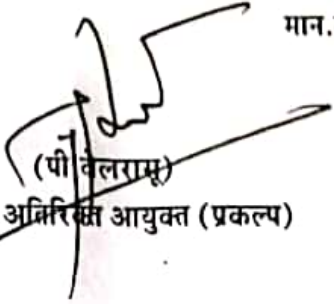 मान.
(पी वेलरासू)
अतिरिक्त आयुक्त (प्रकल्प)